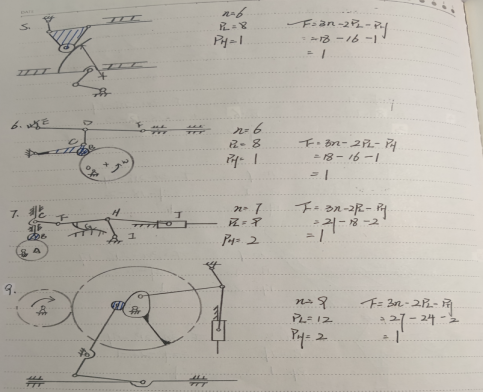 5.
n=6
PL=8
PH=1
F=3n-2PL-PH
=18-16-1
=1
6. E D F
C B
n=6
PL=8
PH=1
F=3n-2PL-PH
=18-16-1
=1
7.
C F H J
G I
B
A
n=7
PL=9
PH=2
F=3n-2PL-PH
=21-18-2
=1
9.
n=9
PL=12
PH=2
F=3n-2PL-PH
=27-24-2
=1